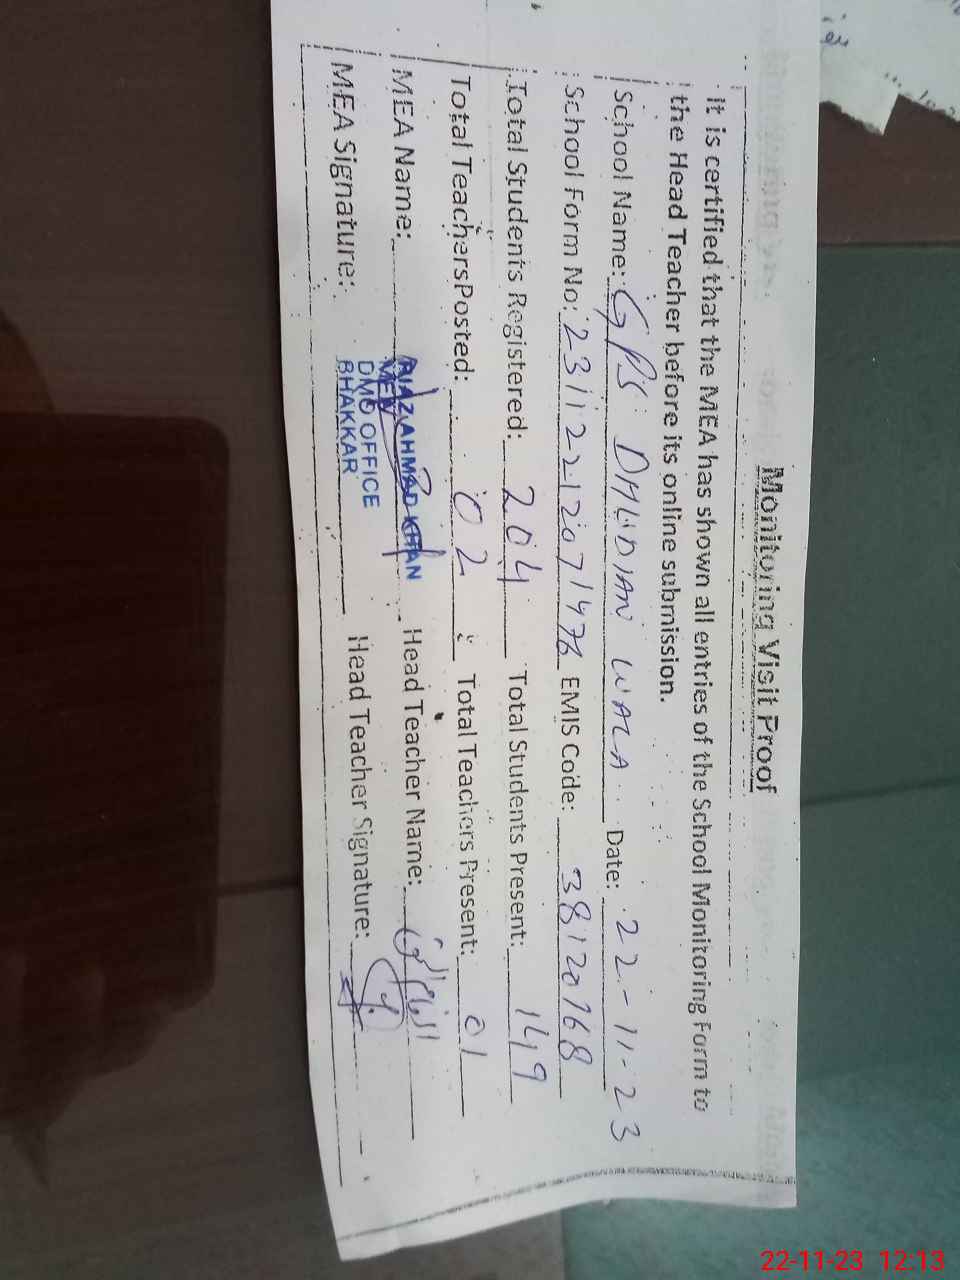 Monitoring Visit Proof
It is certified that the MEA has shown all entries of the School Monitoring Form to
the Head Teacher before its online submission.
School Name: GPS DHUDIAN WALA Date: 22-11-23
School Form No: EMIS Code: 38120768
Total Students Registered: 204 Total Students Present: 149
Total Teachers Posted: 02 Total Teachers Present: 01
MEA Name: RIAZ AHMAD KHAN Head Teacher Name:
MEA
DMO OFFICE
BHAKKAR
MEA Signature: Head Teacher Signature:
22-11-23 12:13